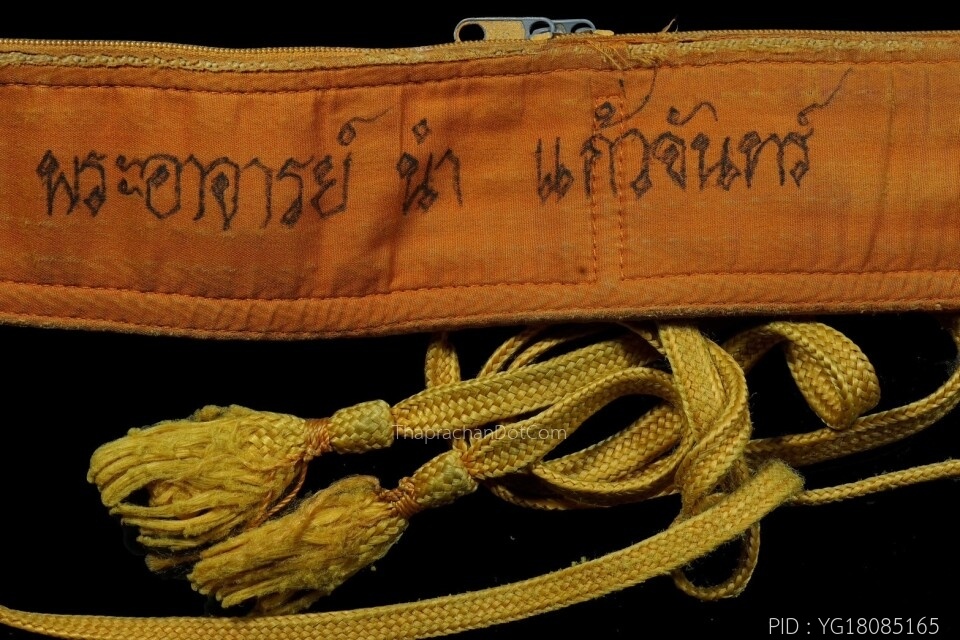 พระอาจารย์ นำ แก้วจันทร์
ThaprachanDotCom
PID : YG18085165